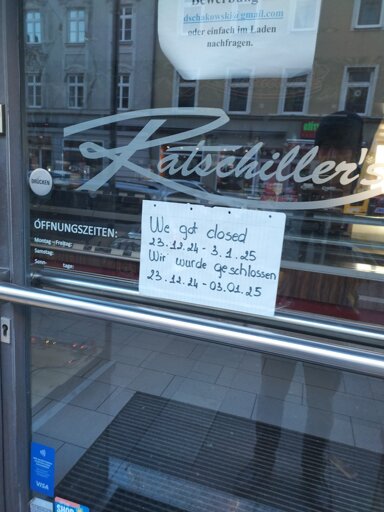 Bewerbung
dschakowski@gmail.com
oder einfach im Laden
nachfragen.
Ratschiller's
DRÜCKEN
ÖFFNUNGSZEITEN:
Montag - Freitag:
Samstag:
Sonn- tage:
We got closed
23.12.24 - 3.1.25
Wir wurde geschlossen
23.12.24 - 03.01.25
VISA
SHOP